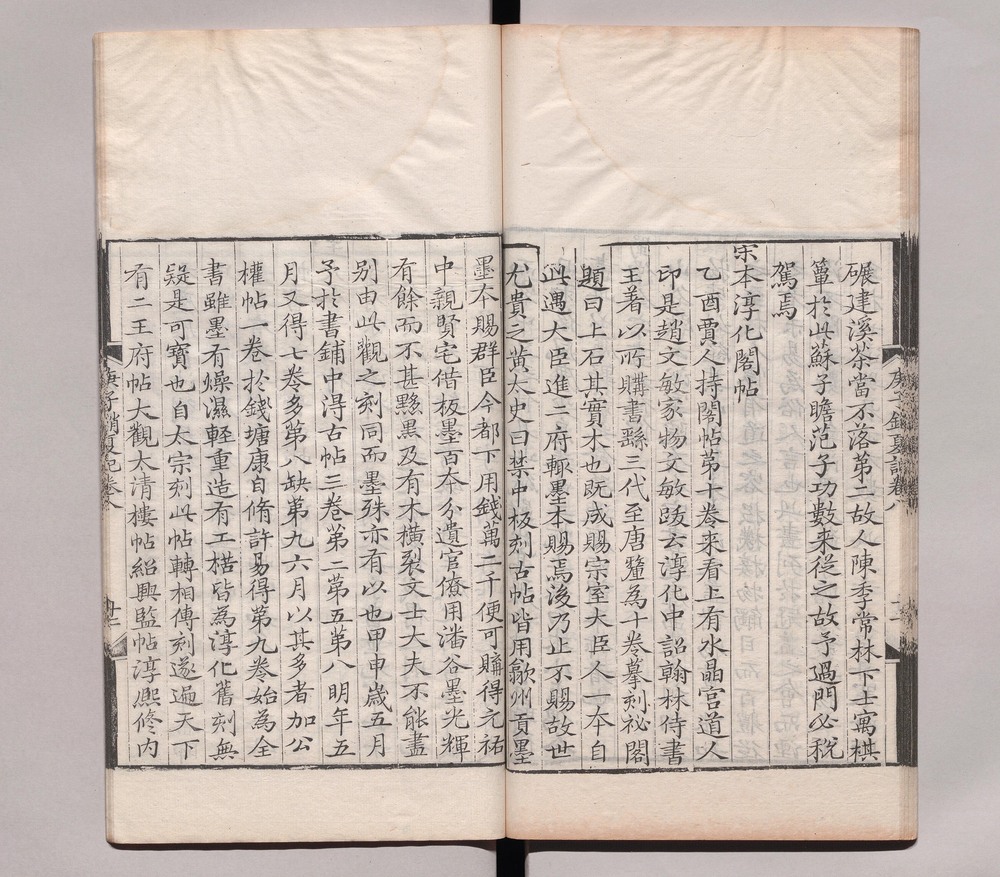 碾建溪茶當不落第二故人陳季常林下士寓棋
簞於此蘇子瞻范子功數来從之故予過門必稅
駕焉
宋本淳化閣帖
乙酉賈人持閣帖苐十卷来看上有水晶宫道人
印是趙文敏家物文敏跋云淳化中詔翰林侍書
王著以所購書繇三代至唐釐為十卷摹刻祕閣
題曰上石其實木也既成賜宗室大臣人一本自
此遇大臣進二府輙墨本賜焉後乃止不賜故世
尤貴之黄太史曰禁中板刻古帖皆用歙州貢墨
墨本賜群臣今都下用錢萬二千便可購得元祐
中親賢宅借板墨百本分遺官僚用潘谷墨光輝
有餘而不甚黟黒及有木横裂文士大夫不能盡
别由此觀之刻同而墨殊亦有以也甲申歲五月
予於書鋪中淂古帖三卷第二第五第八明年五
月又得七卷多第八缺第九六月以其多者加公
權帖一卷於錢塘康自脩許易得第九卷始為全
書雖墨有燥濕輕重造有工楛皆為淳化舊刻無
疑是可寳也自太宗刻此帖轉相傳刻遂遍天下
有二王府帖大觀太清樓帖紹興監帖淳熙修内
庚子銷夏記卷八